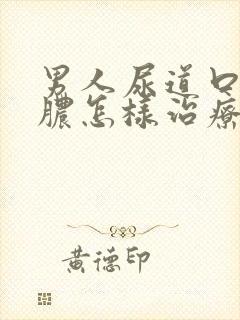 男人尿道口
膿怎樣治療
黄德印